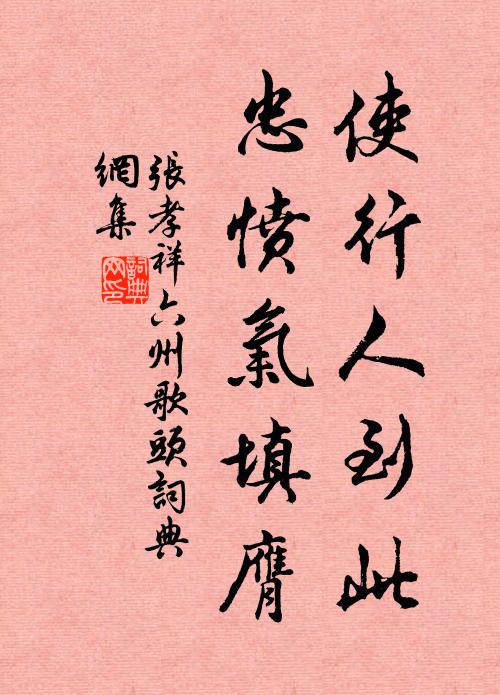 使行人到此
忠憤氣填膺
張孝祥六州歌頭詞典
網集
詞典網印